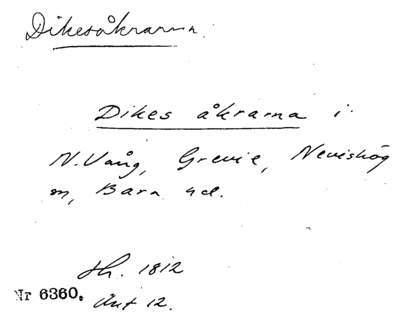 Dikesåkrarna.
Dikes åkrarna i
N. Vång, Grevie, Nevishög
sn, Bara hd.
Sk. 1812
Nr 6360. Akt 12.